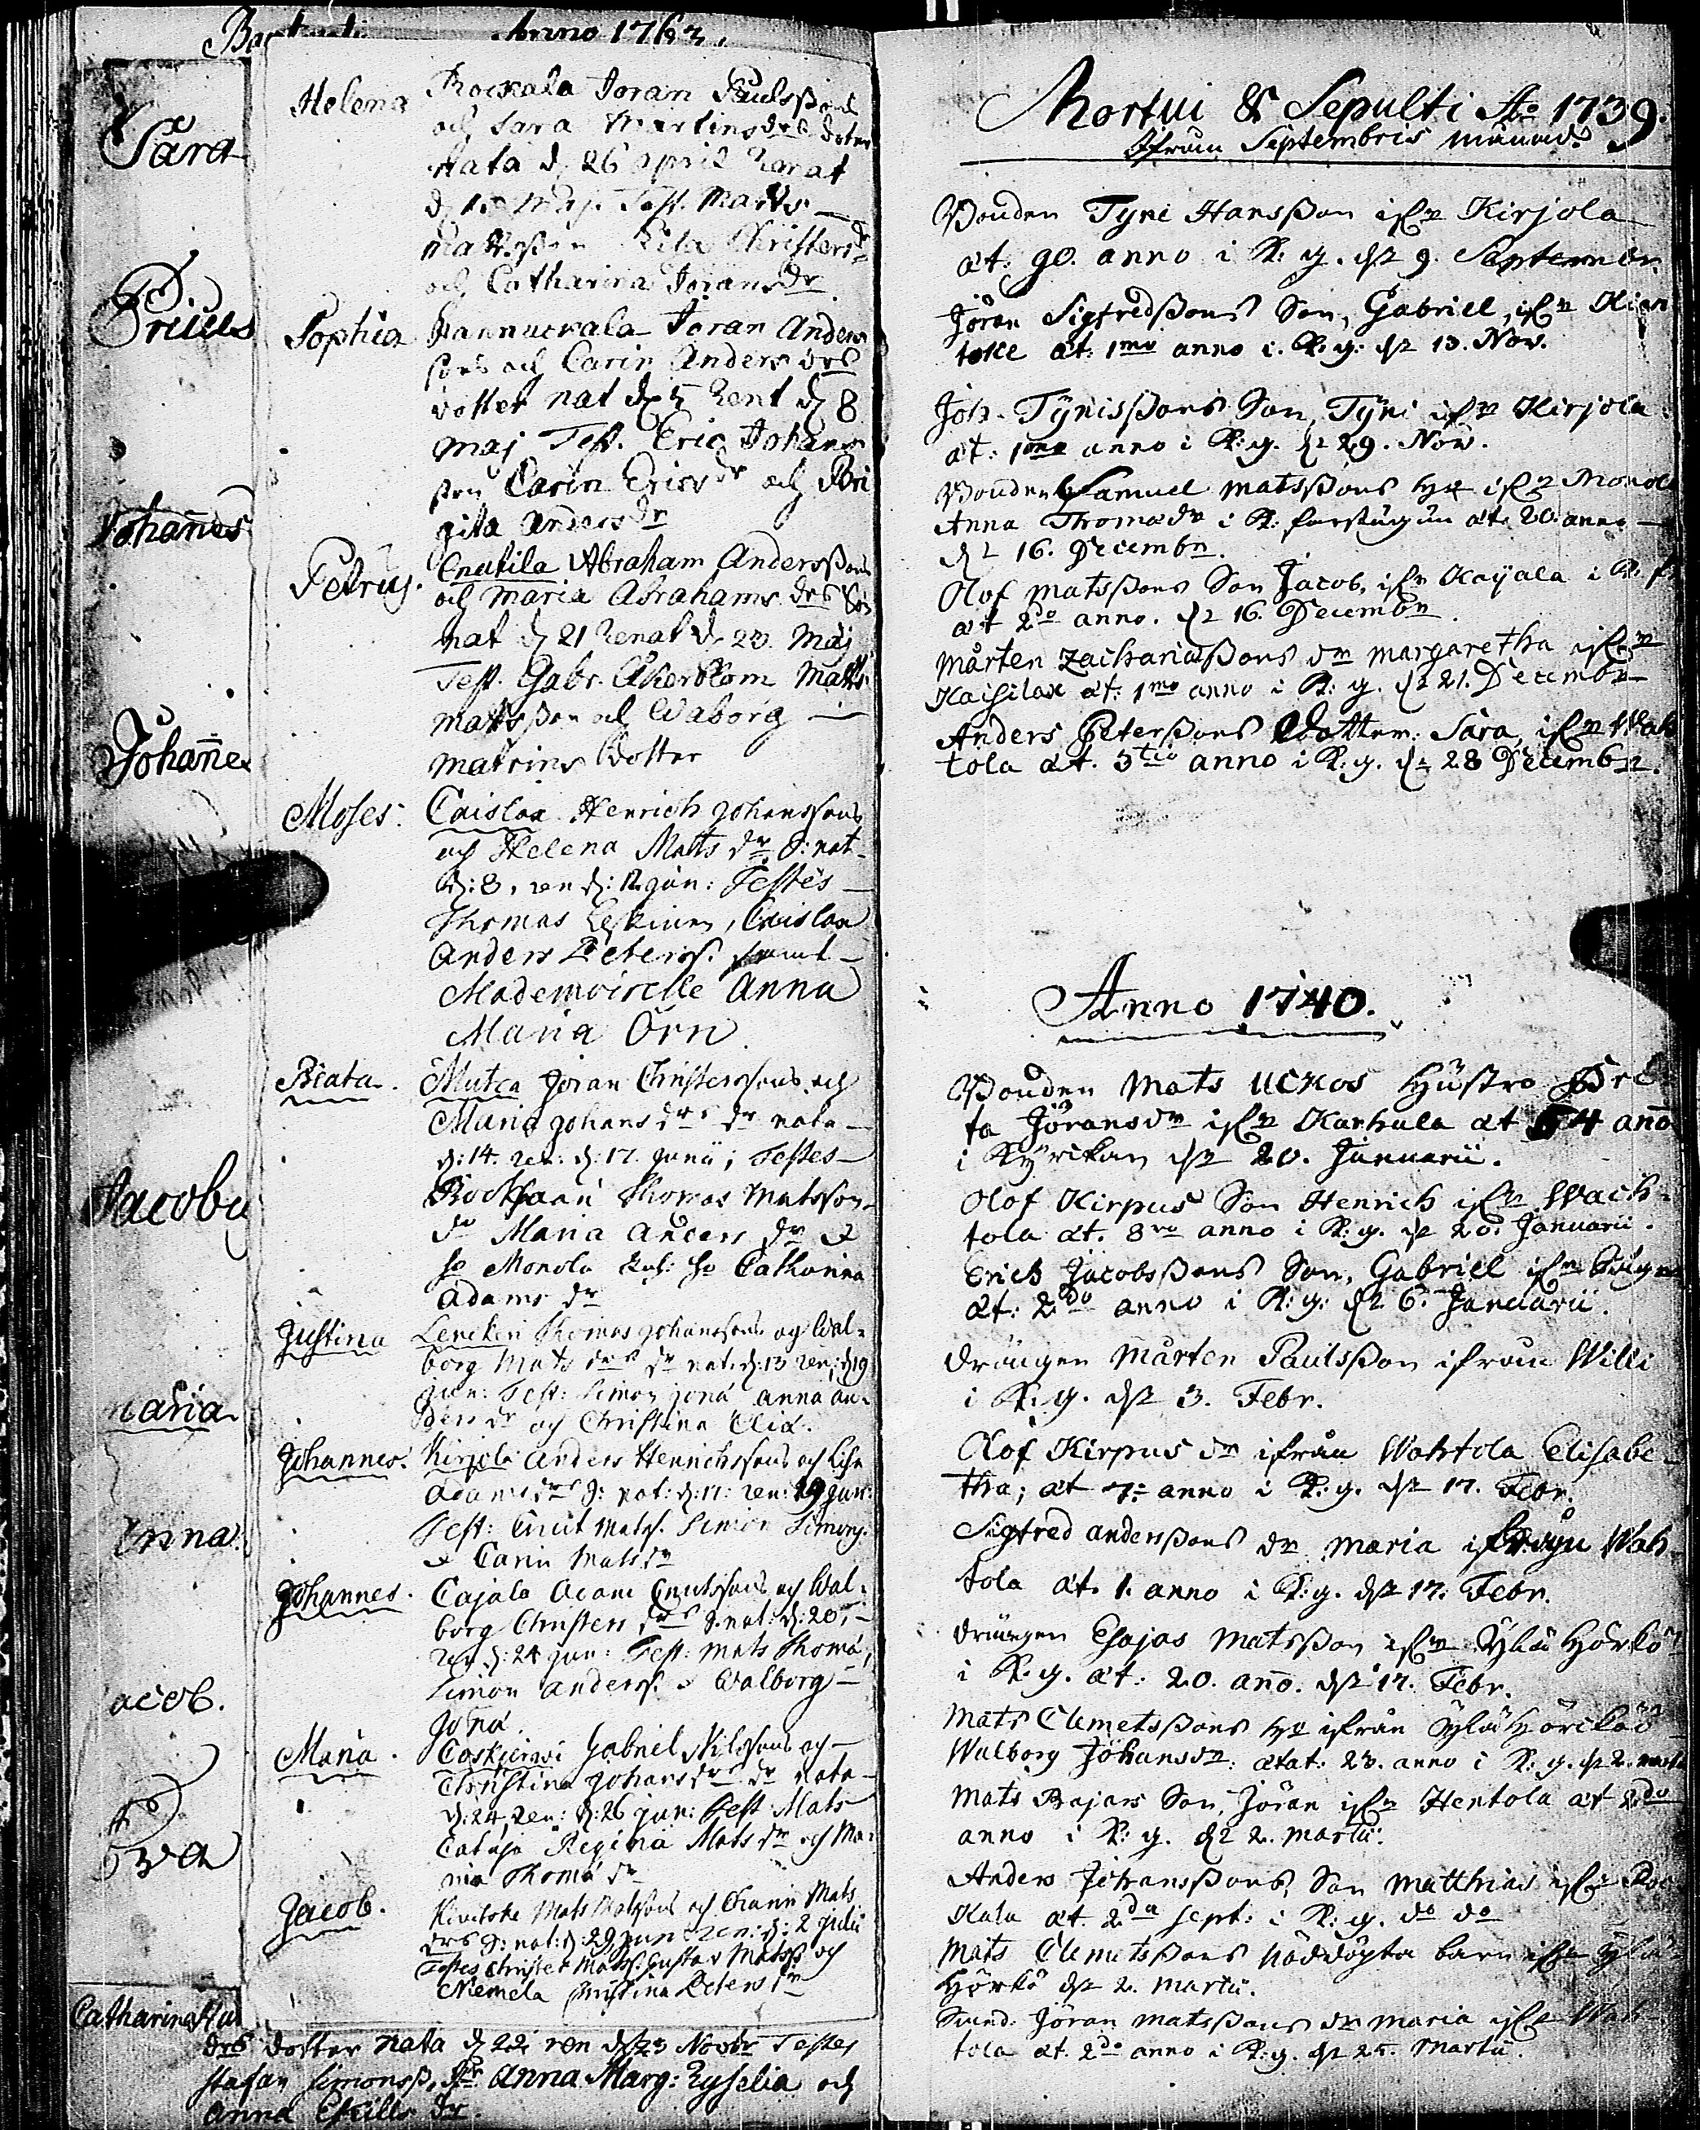 Anno 1763.
Sara
Truls
Johañes
Johañes
Jacobu
maria
Anna
acob.
Eva
Helena
Rockala Joran Paulsßons
och Sara Martinsdrs doter
Nata d. 26 April renat
d. 1 Maj. Test. Matts
Mattsson Lisa Christersdr
och Catharina Joransdr
Sophia
Pannuckala Joran Anders
sons och Carin Anders drs
dotter nat d. 5 Rent d. 8
Maj Test. Eric Johans
son Carin Ericsdr och Bri
gita Andersdr
Petrus.
Cnutila Abraham Andersßons
och Maria Abrahams drs son
nat d. 21 Renat d. 23. Maj
Test. Gabr. Åkerblom Matts
Mattsson och Waborg
Matsins Dotter
Moses.
Caislax Henrich Johanssons
och Helena Matts drs S: nat.
d: 8, ren d: 12 Jun: Testes
Thomas Eskium, Caislax
Anders Peterss. samt
Mademoiselle Anna
Maria Örn
Beata.
Mutca Joran Christerssons och
Maria Johans drs dr nata
d: 14. ren: d: 17. Junii; Testes
Thomas Matsson
dr Maria Anders dr &
Monola Catharina
Adams dr
Justina
Lenckeri Thomas Johanssons og Wal-
borg Mats drs dr nat: d: 13 ren: d: 19
Jun: Test: Simon Jona Anna An-
ders dr og Christina Elia.
Johannes.
Kirjola Anders Henrichssons och Lisa
Adams drs S: nat: d: 17: ren: 19 Jun:
Test: Cnut Matss. Simon Simons.
& Carin Mats dr
Johannes.
Cajala Adam Cnutssons och Wal-
borg Christers drs S: nat: d: 20,
ren d: 24 Jun: Test: Mats Thomæ,
Simon Anderss. & Walborg
Jona.
Maria.
Coskjerwi Gabriel Nilssons och
Christina Johans drs dr nata
d: 24, ren: d: 26 Jun: Test Mats
Catuja Regina Mats dr och Ma-
ria Thomæ dr
Jacob.
Kivitoke Mats Matssons och Charin Mats
drs S: nat: d: 29 Jun ren: d: 2 Julii
Testes Christer Matss. Gustav Matss och
Niemela Christina Peters dr
Catharina
drs dotter nata d 22 ren d 23 Novbr Testes
Stafan Simonss, Anna Marg: Zyselia och
Anna Eskills dr.
Mortui & Sepulti Ao 1739.
Ifrån Septembris månad.
Bonden Tyni Hansßon ifrn Kirjola
æt: 90. anno i K: g. d. 9. Septembr.
Jöran Sigfredßons Son, Gabriel, ifrn Kiwi
toke æt: 1mo anno i K: g: d. 13. Nov.
Joh. Tynisßons Son, Tyni ifrn Kirjola
æt: 1mo anno i K: g. d. 29. Nov.
Bonden Samuel Matsßons ho ifrn Monola
Anna Thomædr i K. farstugun æt. 20. anno
d. 16. Decembr.
Olof Matsßons Son Jacob, ifrn Kayala i K. f.
æt 2do anno. d. 16. Decembr.
Mårten Zachariæßons dr Margaretha ifrn
Kaisilax æt: 1mo anno i K: g. d. 21. Decembr
Anders Peterßons Dotter Sara, ifrn Wah
tola æt. 3tio anno i K. g. d. 28 Decembr.
Anno 1740.
Bonden Mats Uckos Hustro Bre
ta Jöransdr ifrn Karhula æt 54 anō
i Kyrckan d. 20. Januarii.
Olof Kirpus Son Henrich ifrn Wach-
tola æt. 8vo anno i K: g. d. 20. Januarii.
Erich Jacobsßons Son, Gabriel ifrn
æt: 2do anno i K: g: d. 6. Januarii.
Drängen Mårten Paulsßon ifrån Willi
i K: g. d. 3. Febr.
Olof Kirpus dr ifrån Wahtola Elisabe-
tha; æt 7. anno i K: g. d. 17. Febr.
Sigfred Andersßons dr Maria ifrån Wah
tola æt. 1. anno i K: g. d. 17. Febr.
Drängen Esajas Matsßon ifrn Ylä Hörkö
i K: g. æt: 20. anō. d. 17. Febr.
Mats Clemetsßons ho ifrån Ylä Hörckö
Walborg Johansdr. ætat: 23. anno i K: g. d. 2. Marti
Mats Bajars Son, Jöran ifrn Hentola æt 2do
anno i K: g. d. 2. Martii.
Anders Johansßons Son Matthias ifrn Roc
Kala æt. 2da sept: i K: g. do do
Mats Clemetsßons nöddöpta barn ifrn Ylä
Hörkö d. 2. Martii.
Jöran Matsßons dr Maria ifrn Wah
tola æt. 2do anno i K: g. d. 25. Martii.